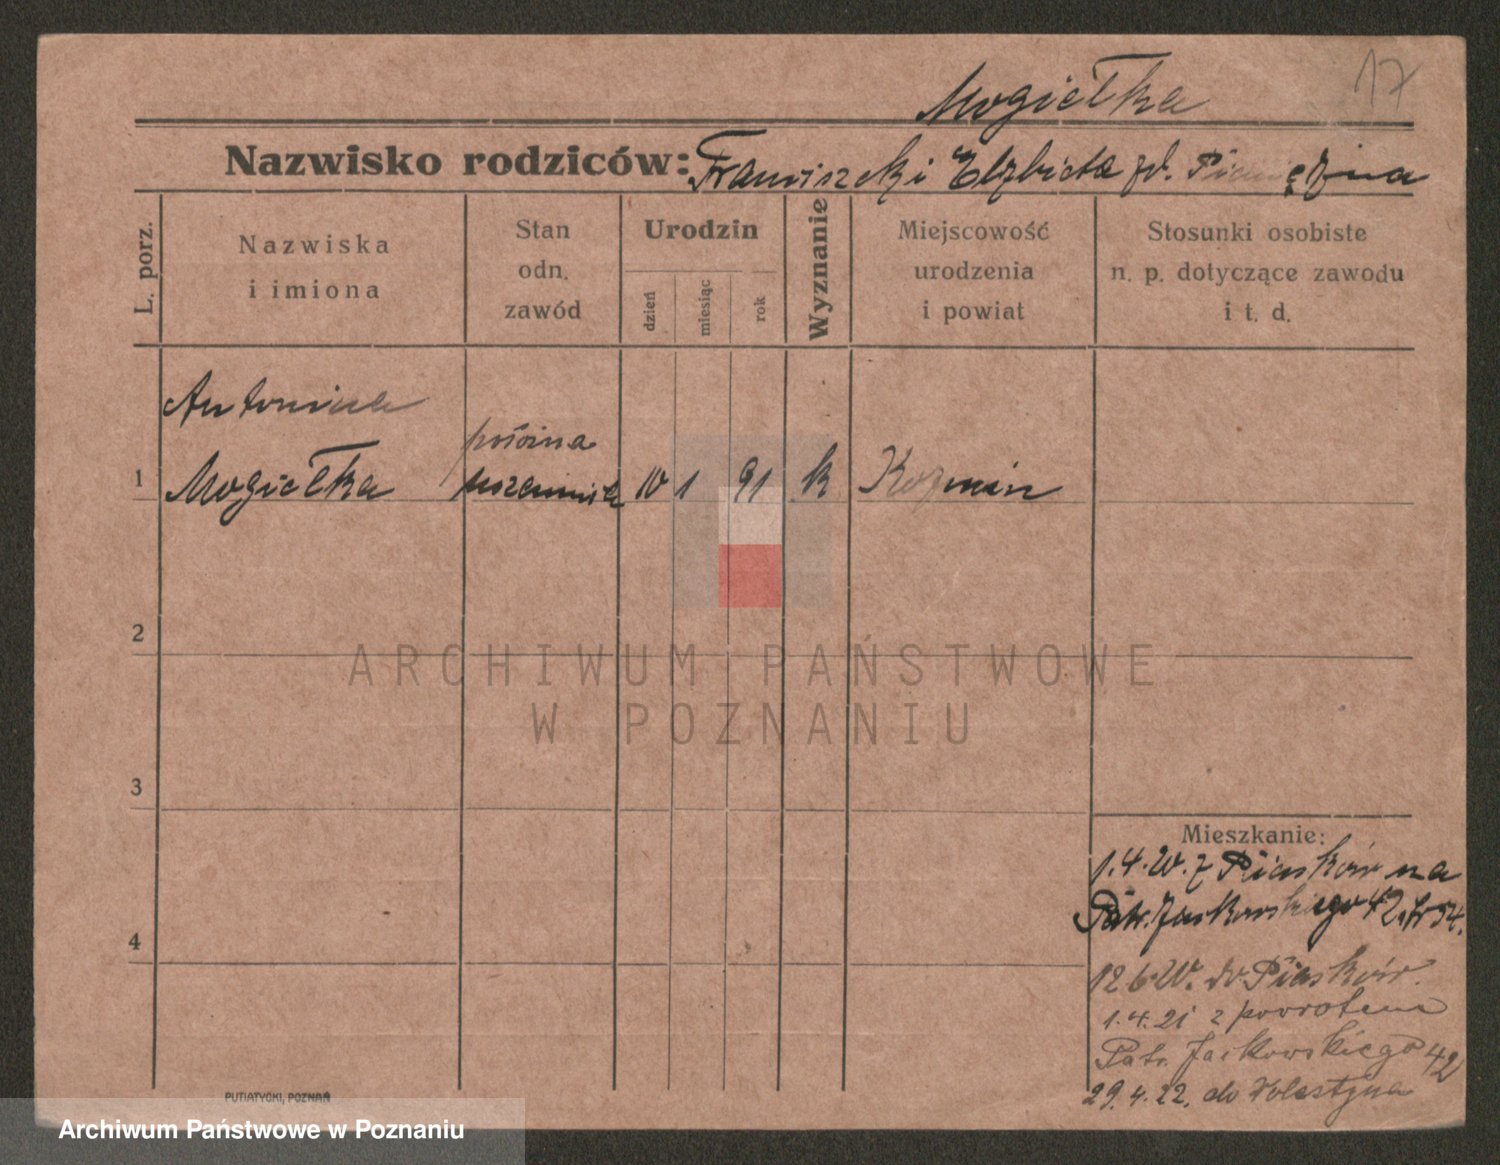 17
Mogiełka
Nazwisko rodziców: Franciszek i Elżbieta zd.
L. porz.
Nazwiska
i imiona
Stan
odn.
zawód
Urodzin
dzień
miesiąc
rok
Wyznanie
Miejscowość
urodzenia
i powiat
Stosunki osobiste
n. p. dotyczące zawodu
i t. d.
Antonina
1 Mogiełka 10 1 91 k Kozmin
2
3
4
ARCHIWUM PAŃSTWOWE
W POZNANIU
Mieszkanie:
1.4.20. z Piasków na
Patr. Jackowskiego 42
12 6 20. do Piasków.
1.4.21 z powrotem
Patr. Jackowskiego 42
29.4.22. do
PUTIATYCKI, POZNAŃ
Archiwum Państwowe w Poznaniu